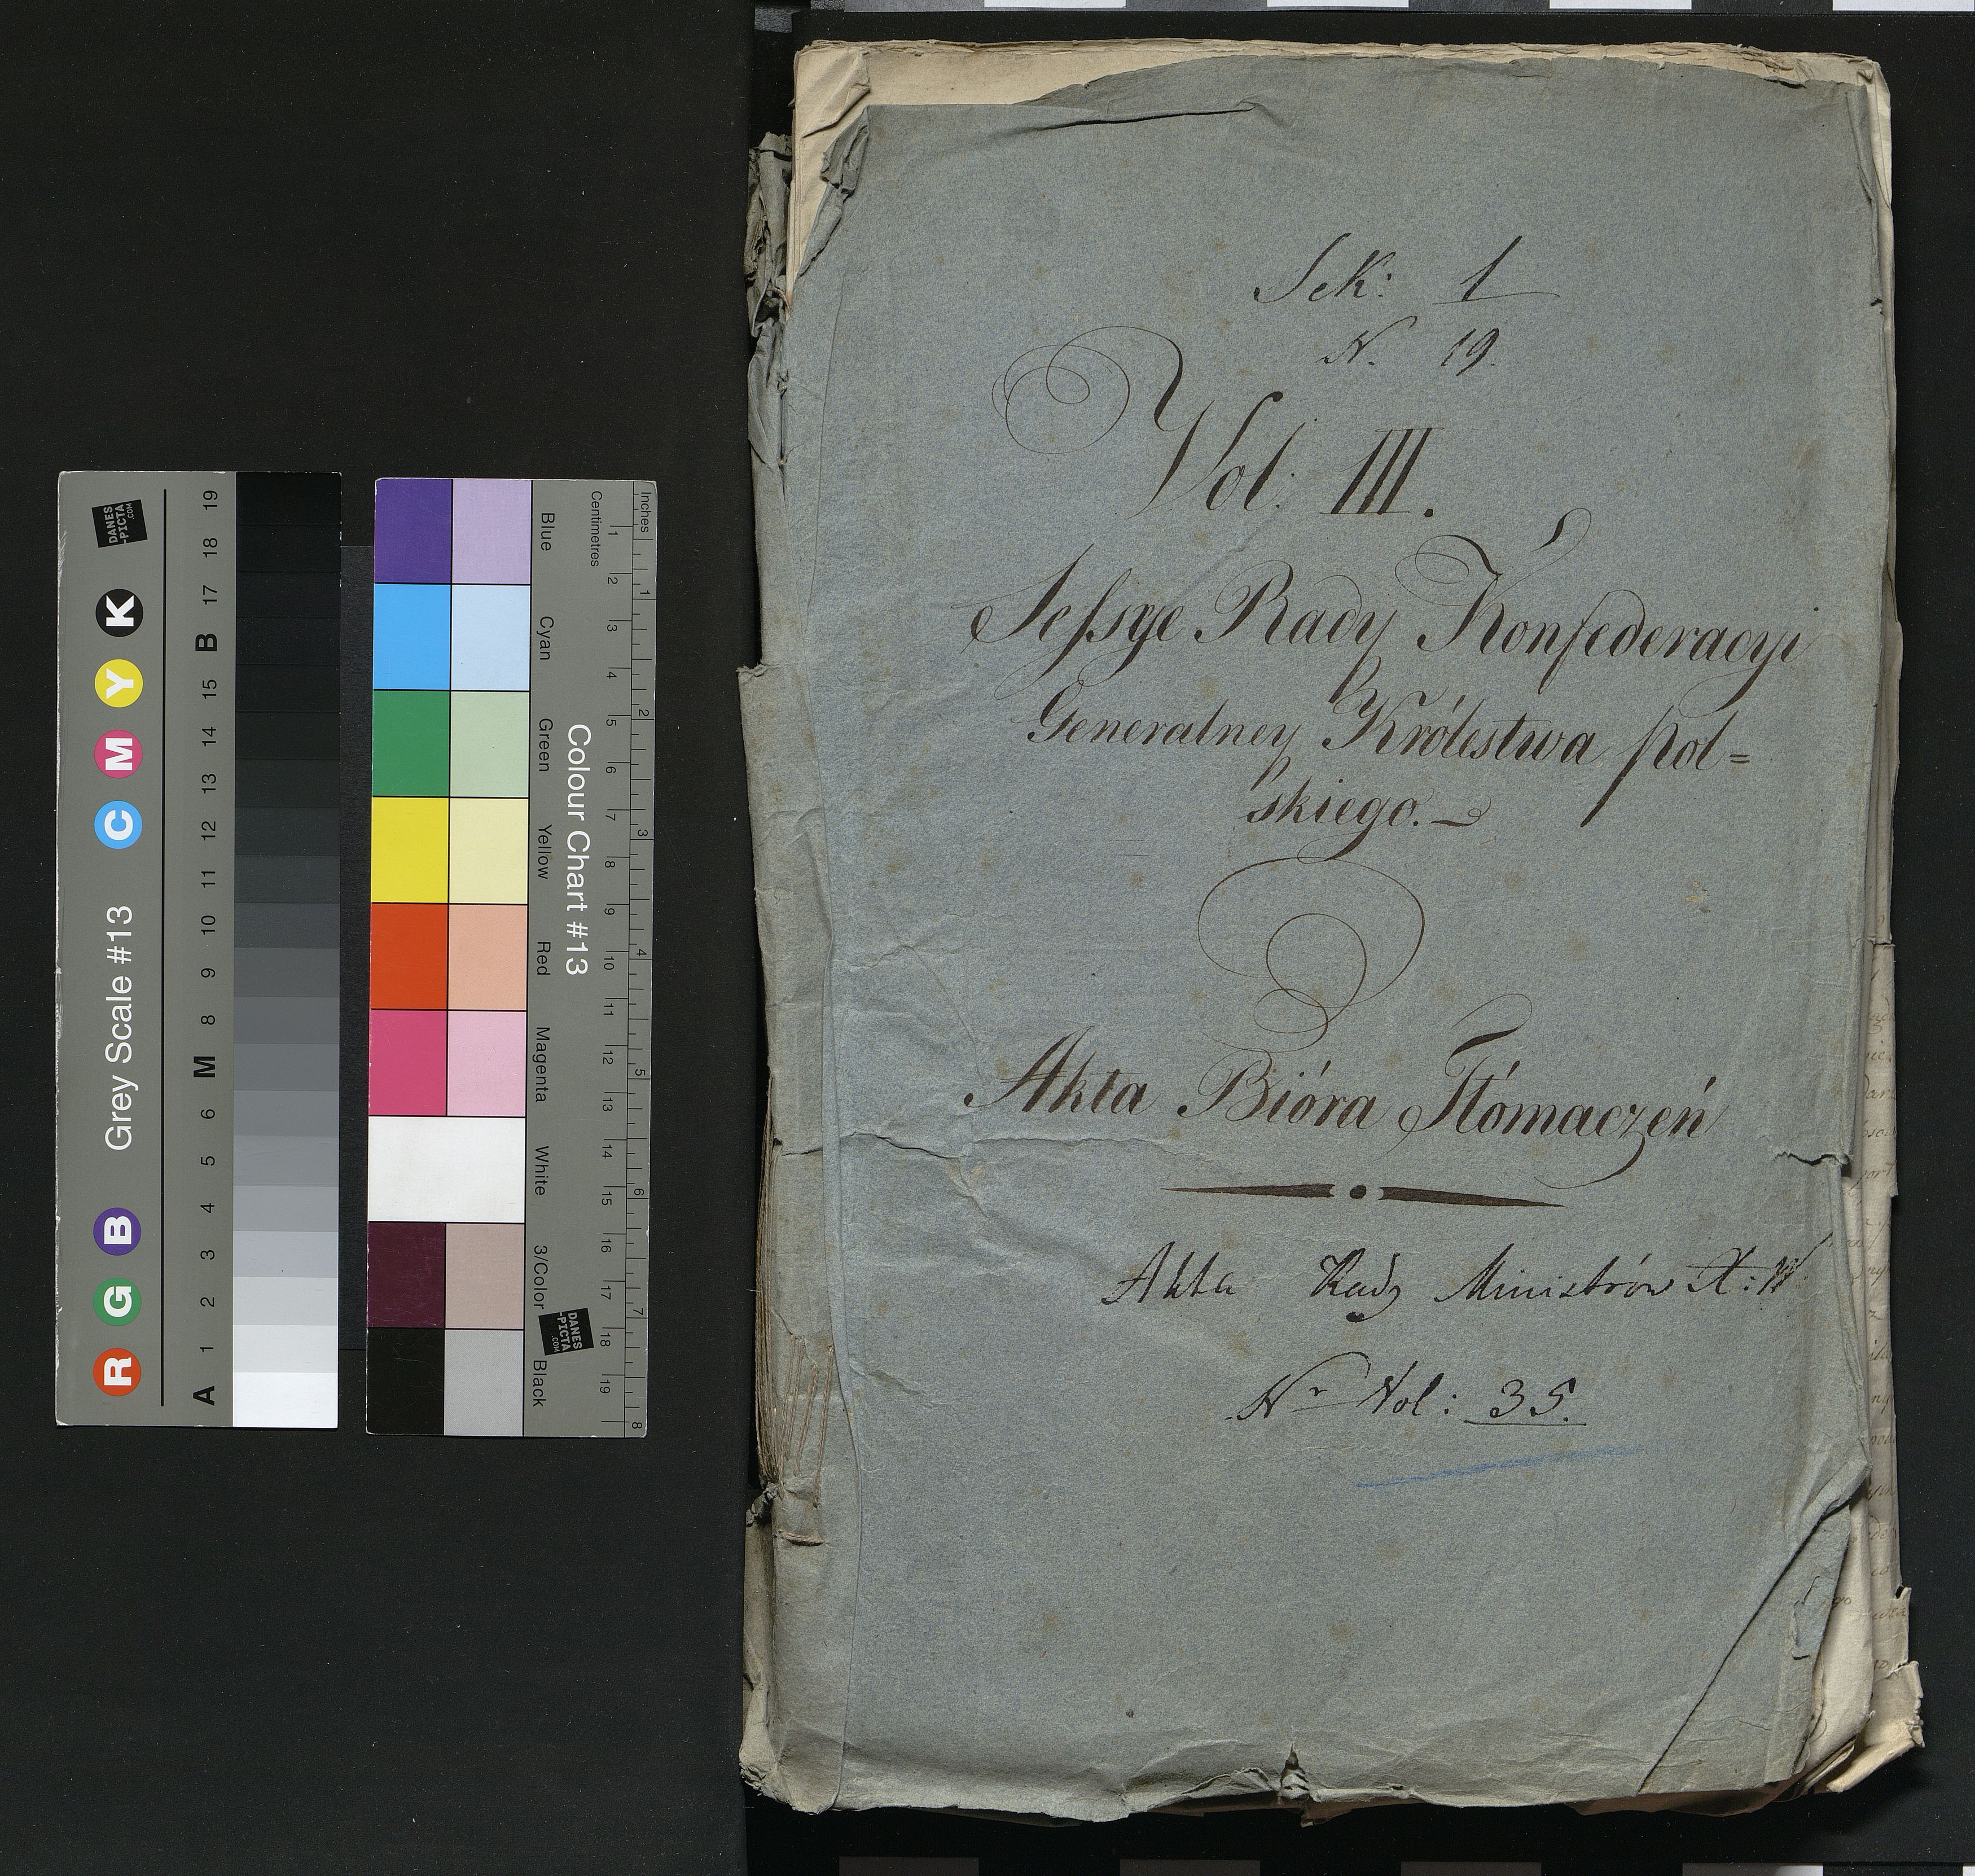 Sek: 1
N. 19.
Vol: III.
Sefsye Rady Konfederacyi
Generalney Królestwa Pol=
skiego.
Akta Bióra Tłómaczeń
Akta Rady Ministrów X: W
Nr Vol: 35.
Grey Scale #13
DANES
-PICTA
.COM
R G B C M Y K
A 1 2 3 4 5 6 M 8 9 10 11 12 13 14 15 B 17 18 19
Colour Chart #13
Blue
Cyan
Green
Yellow
Red
Magenta
White
3/Color
Black
Centimetres
1 2 3 4 5 6 7 8 9 10 11 12 13 14 15 16 17 18 19
Inches
1 2 3 4 5 6 7 8
DANES
-PICTA
.COM